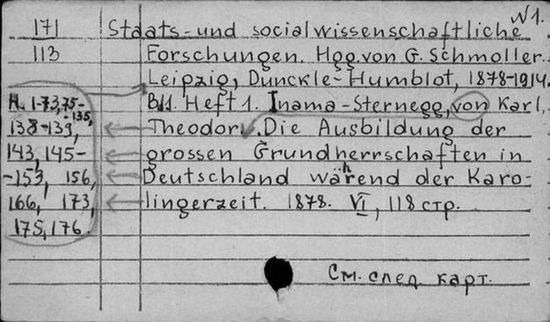 №1.
171 Staats- und socialwissenschaftliche
113 Forschungen. Hgg. von G. Schmoller.
Leipzig, Dunckle-Humblot, 1878-1914.
H. 1-73, 75- Bd1. Heft 1. Inama-Sternegg, von Karl,
-135,
138-139, Theodor. Die Ausbildung der
143, 145- grossen Grundherrschaften in
-153, 156, Deutschland währhend der Karo-
166, 173, lingerzeit. 1878. VI, 118 стр.
175, 176
См. след. карт.